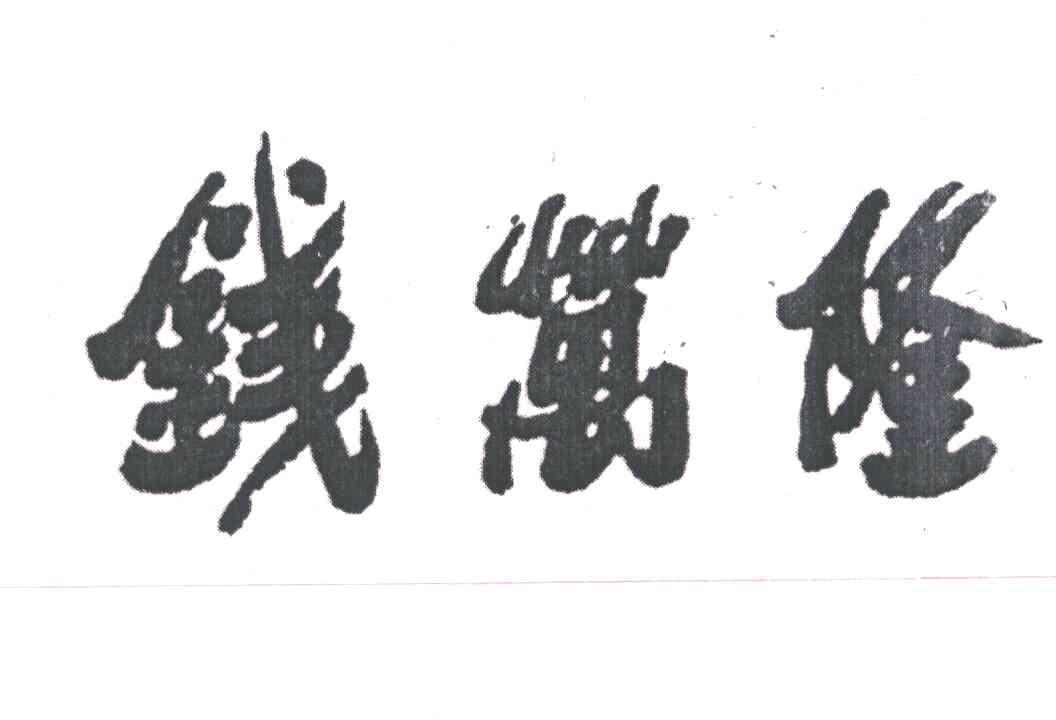 錢萬隆